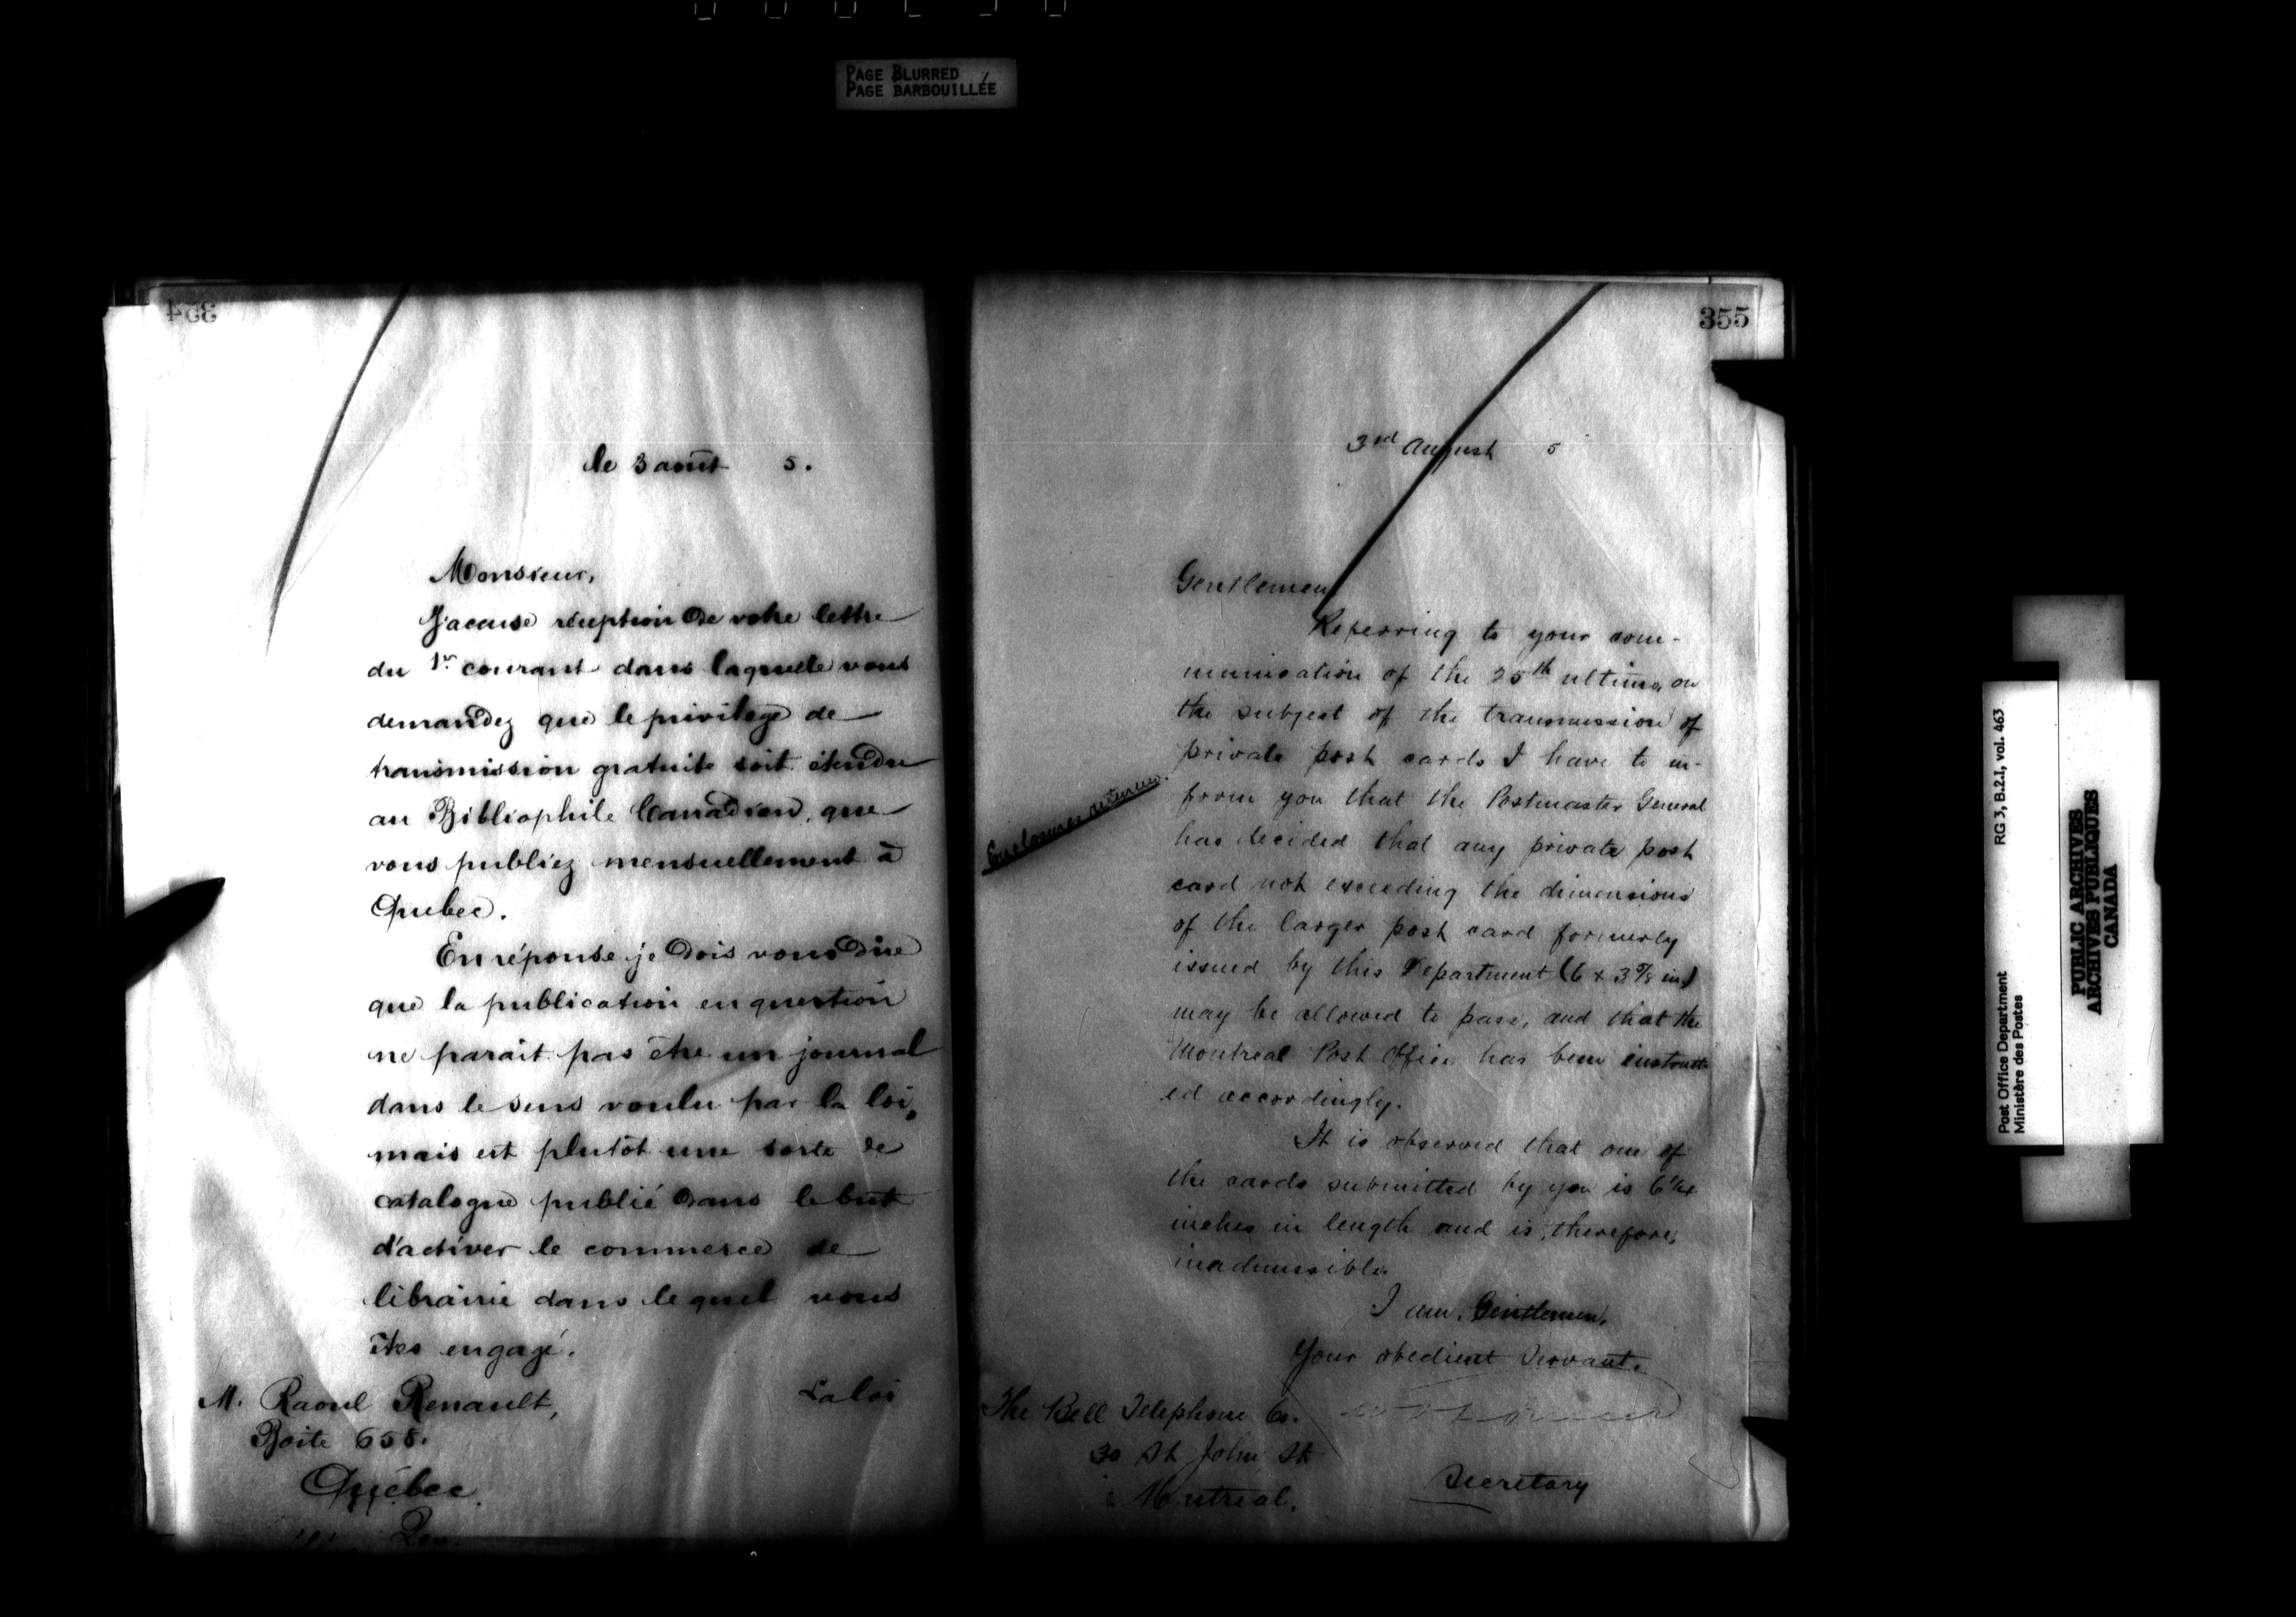 PAGE BLURRED
PAGE BARBOUILLÉE
354
le 3 août 5.
Monsieur,
J'accuse réception de votre lettre
du 1er courant dans laquelle vous
demandez que le privilège de
transmission gratuite soit étendu
au Bibliophile Canadien, que
vous publiez mensuellement à
Québec.
En réponse je dois vous dire
que la publication en question
ne parait pas être un journal
dans le sens voulu par la loi,
mais est plutôt une sorte de
catalogue publié dans le but
d'activer le commerce de
librairie dans lequel vous
êtes engagé.
La loi
M. Raoul Renault,
Boîte 658.
Québec
355
3rd August 5
Gentlemen
Referring to your com-
munication of the 25th ultimo, on
the subject of the transmission of
private post cards I have to in-
form you that the Postmaster General
has decided that any private post
card not exceeding the dimensions
of the larger post card formerly
issued by this Department (6 x 3 5/8 in)
may be allowed to pass, and that the
Montreal Post Office has been instruct-
ed accordingly.
Enclosures returned.
It is observed that one of
the cards submitted by you is 6 1/4
inches in length and is, therefore,
inadmissible.
I am, Gentlemen,
Your obedient Servant.
Secretary
The Bell Telephone Co.
30 St John St
Montreal.
Post Office Department
Ministère des Postes
RG 3, B.2.1, vol. 463
PUBLIC ARCHIVES
ARCHIVES PUBLIQUES
CANADA